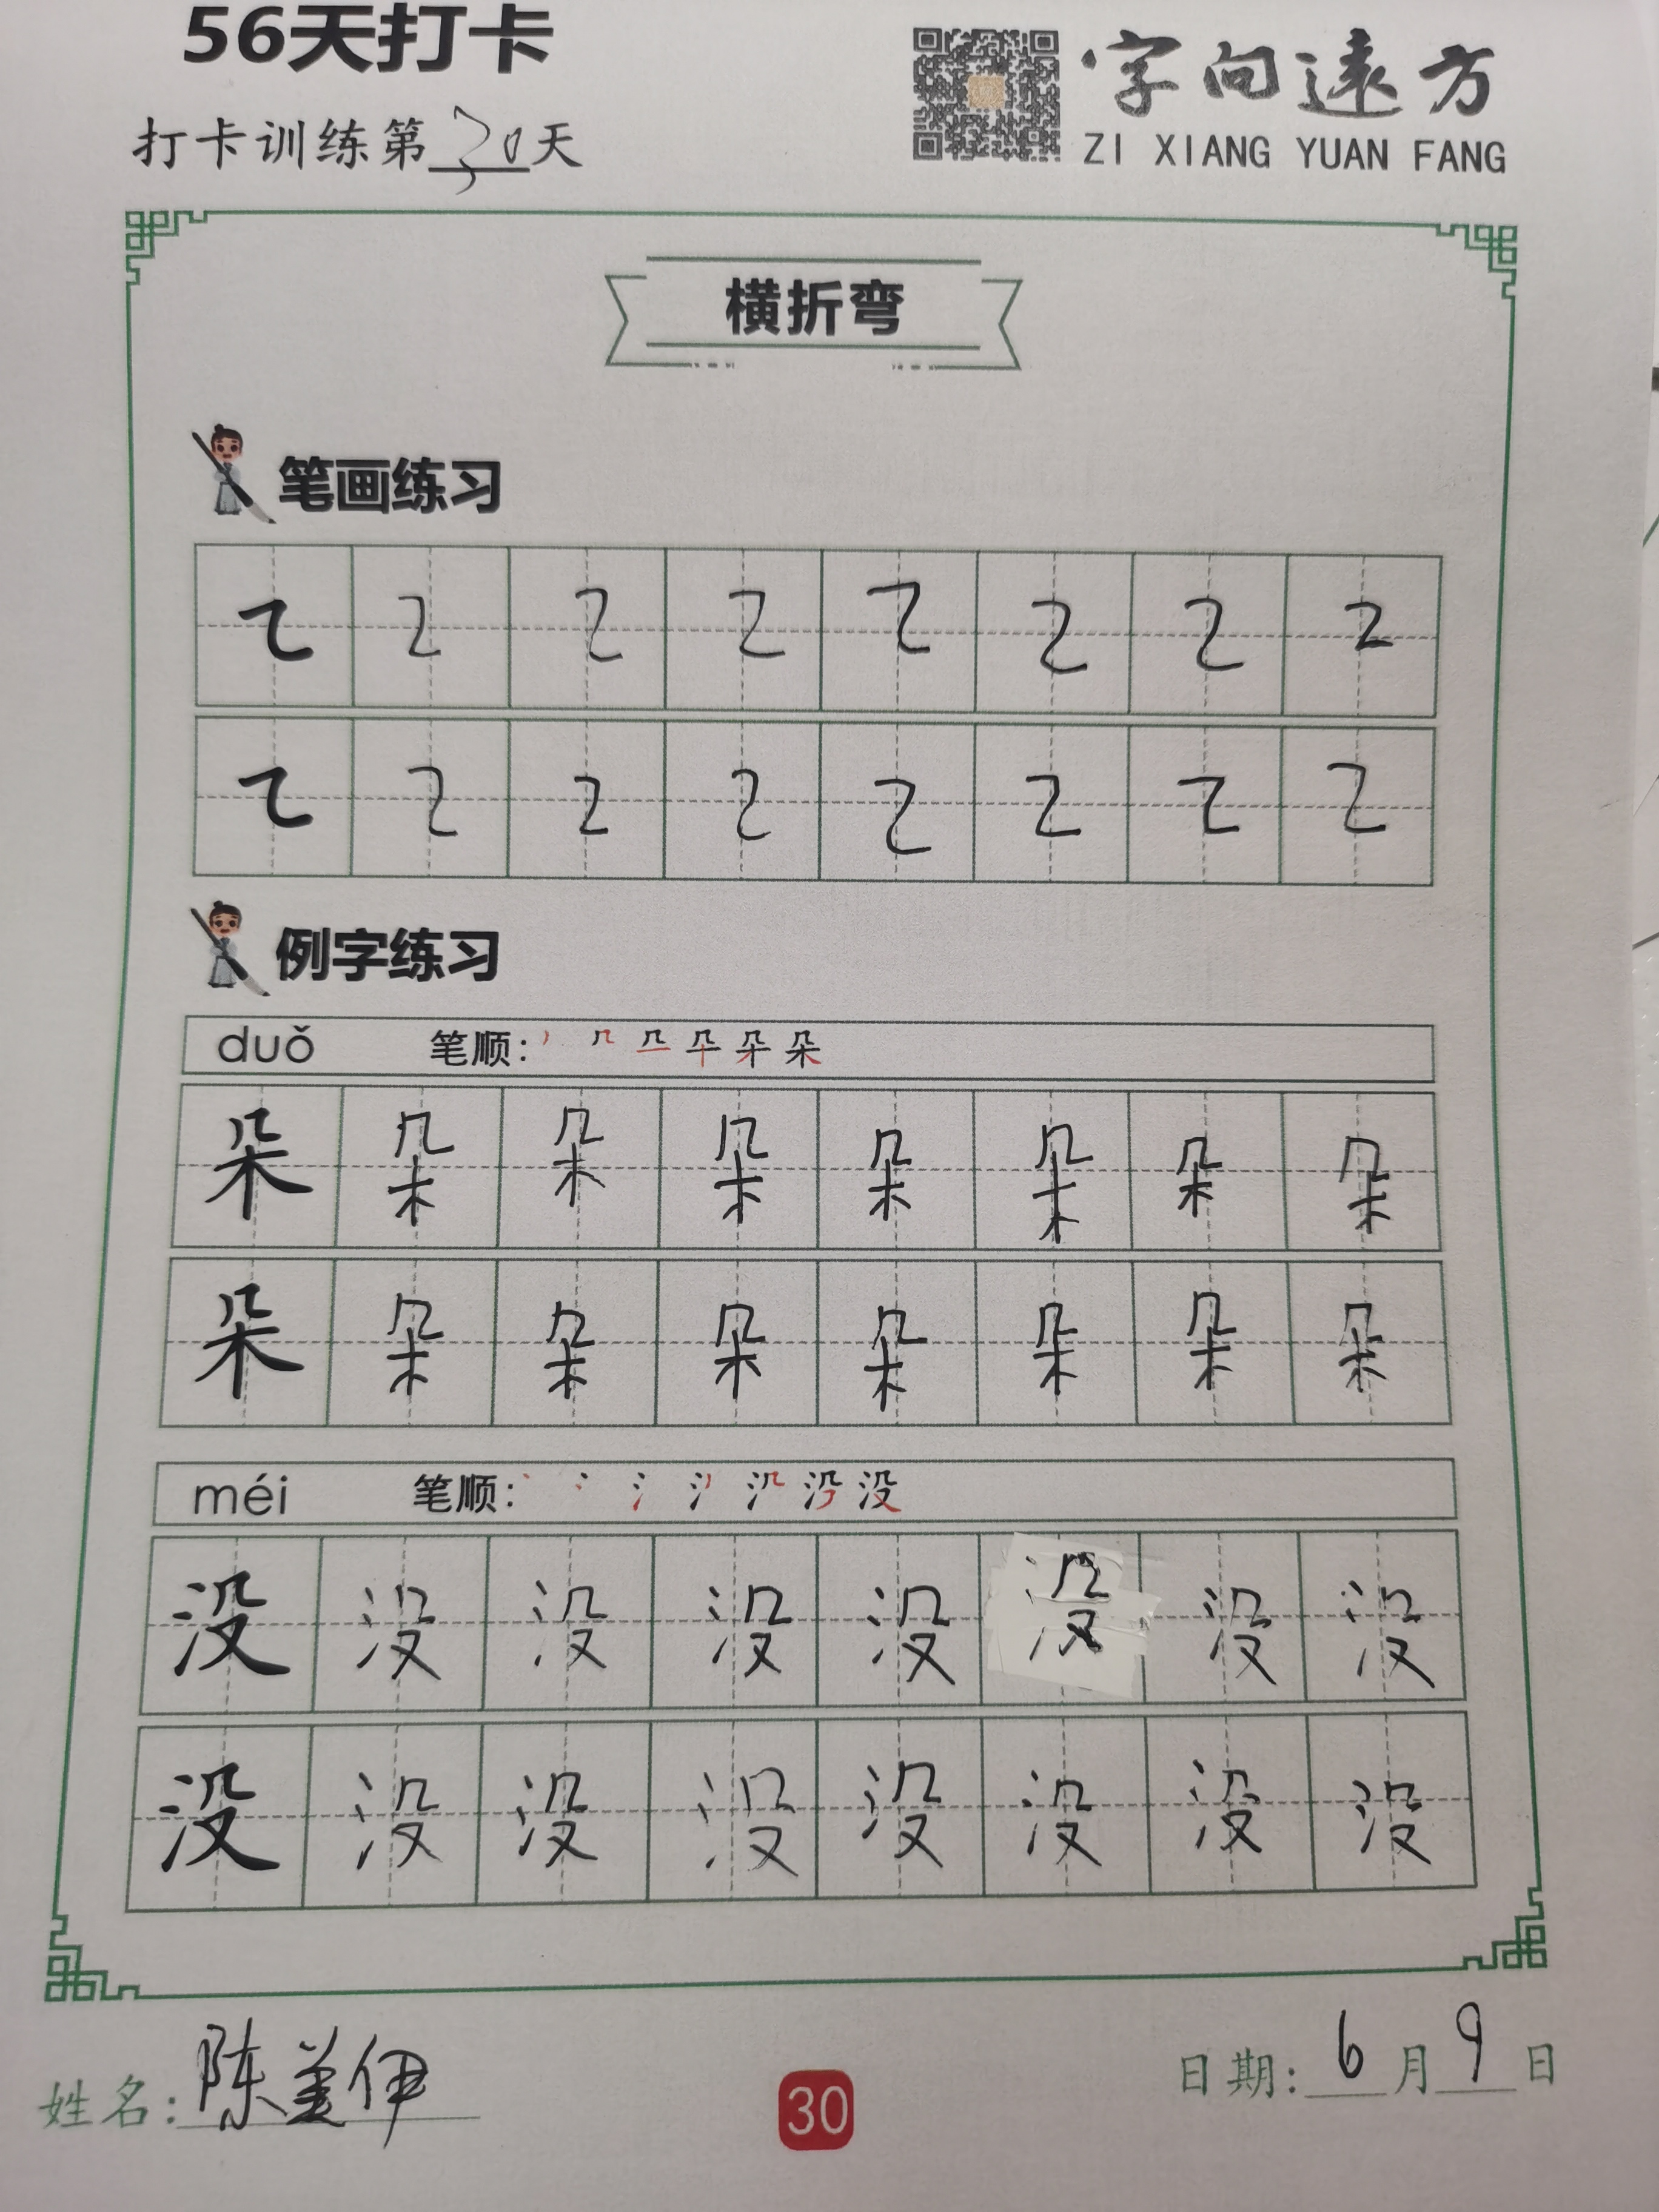 56天打卡
字向遠方
打卡训练第30天
ZI XIANG YUAN FANG
横折弯
笔画练习
㇍ ㇍ ㇍ ㇍ ㇍ ㇍ ㇍ ㇍
㇍ ㇍ ㇍ ㇍ ㇍ ㇍ ㇍ ㇍
例字练习
duǒ 笔顺: 朵
朵 朵 朵 朵 朵 朵 朵 朵
朵 朵 朵 朵 朵 朵 朵 朵
méi 笔顺: 没
没 没 没 没 没 没 没 没
没 没 没 没 没 没 没 没
姓名: 陈美伊
30
日期: 6月9日